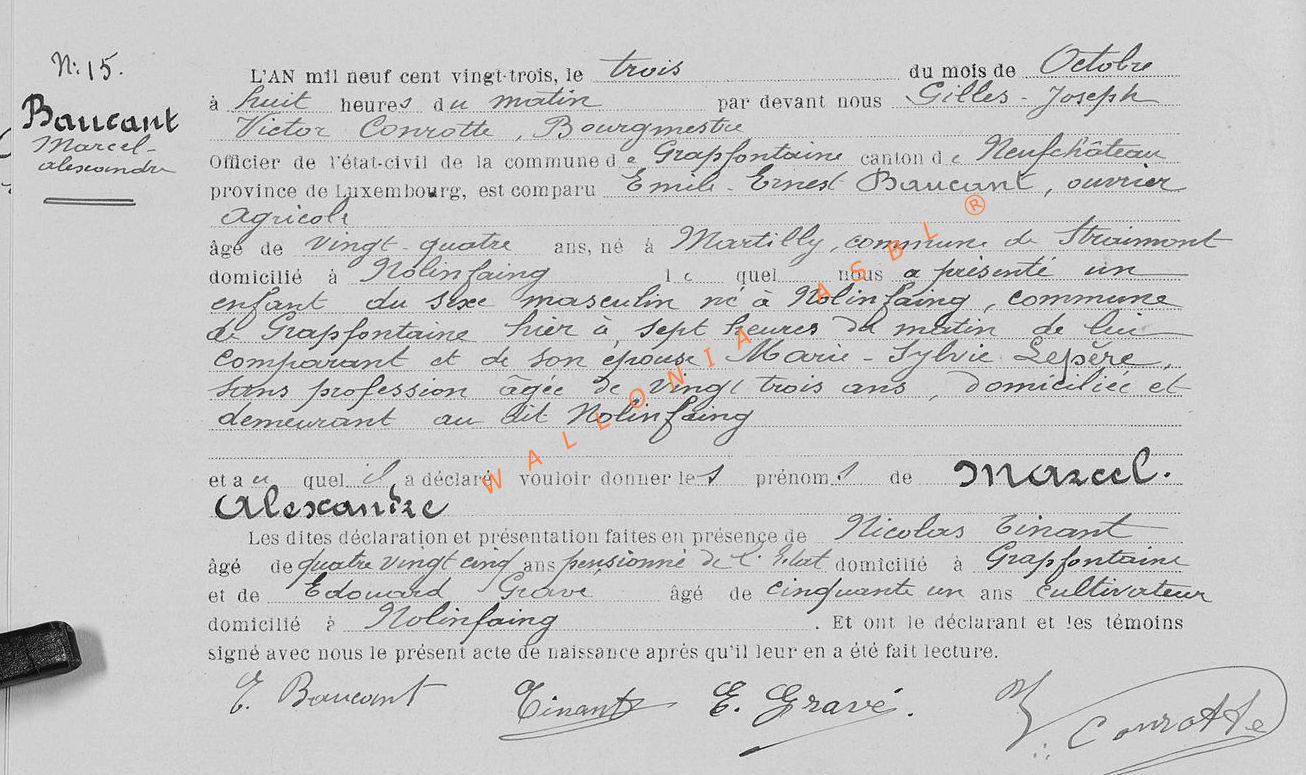 N: 15.
Baucant
Marcel-
alexandre
L'AN mil neuf cent vingt-trois, le trois du mois de Octobre
à huit heures du matin par devant nous Gilles-Joseph
Victor Conrotte, Bourgmestre
Officier de l'état-civil de la commune de Grapfontaine canton de Neufchâteau
province de Luxembourg, est comparu Emile-Ernest Baucant, ouvrier
agricole
âgé de vingt-quatre ans, né à Martilly, commune de Straimont
domicilié à Nolinfaing lequel nous a présenté un
enfant du sexe masculin né à Nolinfaing, commune
de Grapfontaine hier à sept heures du matin de lui
comparant et de son épouse Marie-Sylvie Lepère,
sans profession âgée de vingt trois ans, domiciliée et
demeurant au dit Nolinfaing
et auquel il a déclaré vouloir donner les prénoms de Marcel.
Alexandre
Les dites déclaration et présentation faites en présence de Nicolas Tinant
âgé de quatre vingt cinq ans pensionné de l'Etat domicilié à Grapfontaine
et de Edouard Gravé âgé de cinquante un ans cultivateur
domicilié à Nolinfaing. Et ont le déclarant et les témoins
signé avec nous le présent acte de naissance après qu'il leur en a été fait lecture.
E. Baucant Tinant E. Gravé. V. Conrotte
WALLONIA ASBL ®